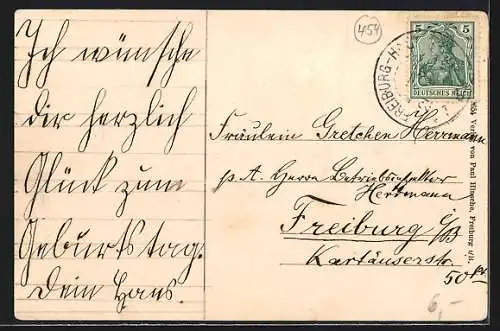 Ich wünsche
dir herzlich
Glück zum
Geburtstag.
Dein Hans.
454
5 5
DEUTSCHES REICH
FREIBURG
Fräulein Gretchen Herrmann
p. A. Herrn Betriebsinspektor
Herrmann
Freiburg i/B
Kartäuserstr.
50
6,-
Verlag von Paul Freiburg i/B.